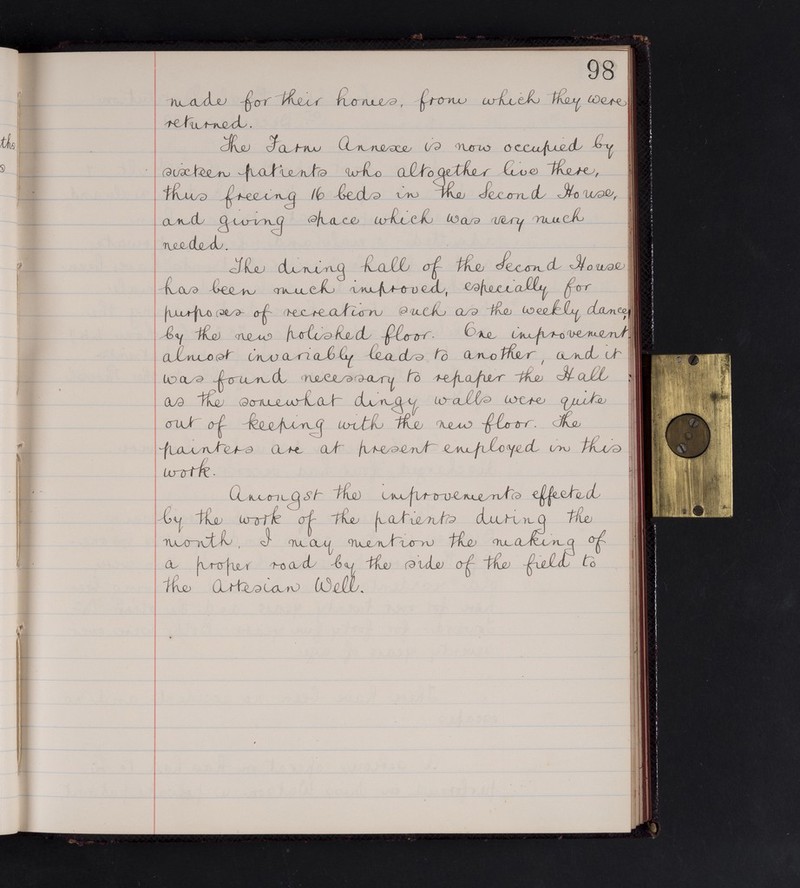 98
made for their homes, from which they were
returned.
The Farm Annexe is now occupied by
sixteen patients who altogether live there,
thus freeing 16 beds in the Second House,
and giving space which was very much
needed.
The dining hall of the Second House
has been much improved, especially for
purposes of recreation such as the weekly dances,
by the new polished floor. One improvement
almost invariably leads to another, and it
was found necessary to repaper the Hall
as the somewhat dingy walls were quite
out of keeping with the new floor. The
painters are at present employed in this
work.
Amongst the improvements effected
by the work of the patients during the
month, I may mention the making of
a proper road by the side of the field to
the Artesian Well.